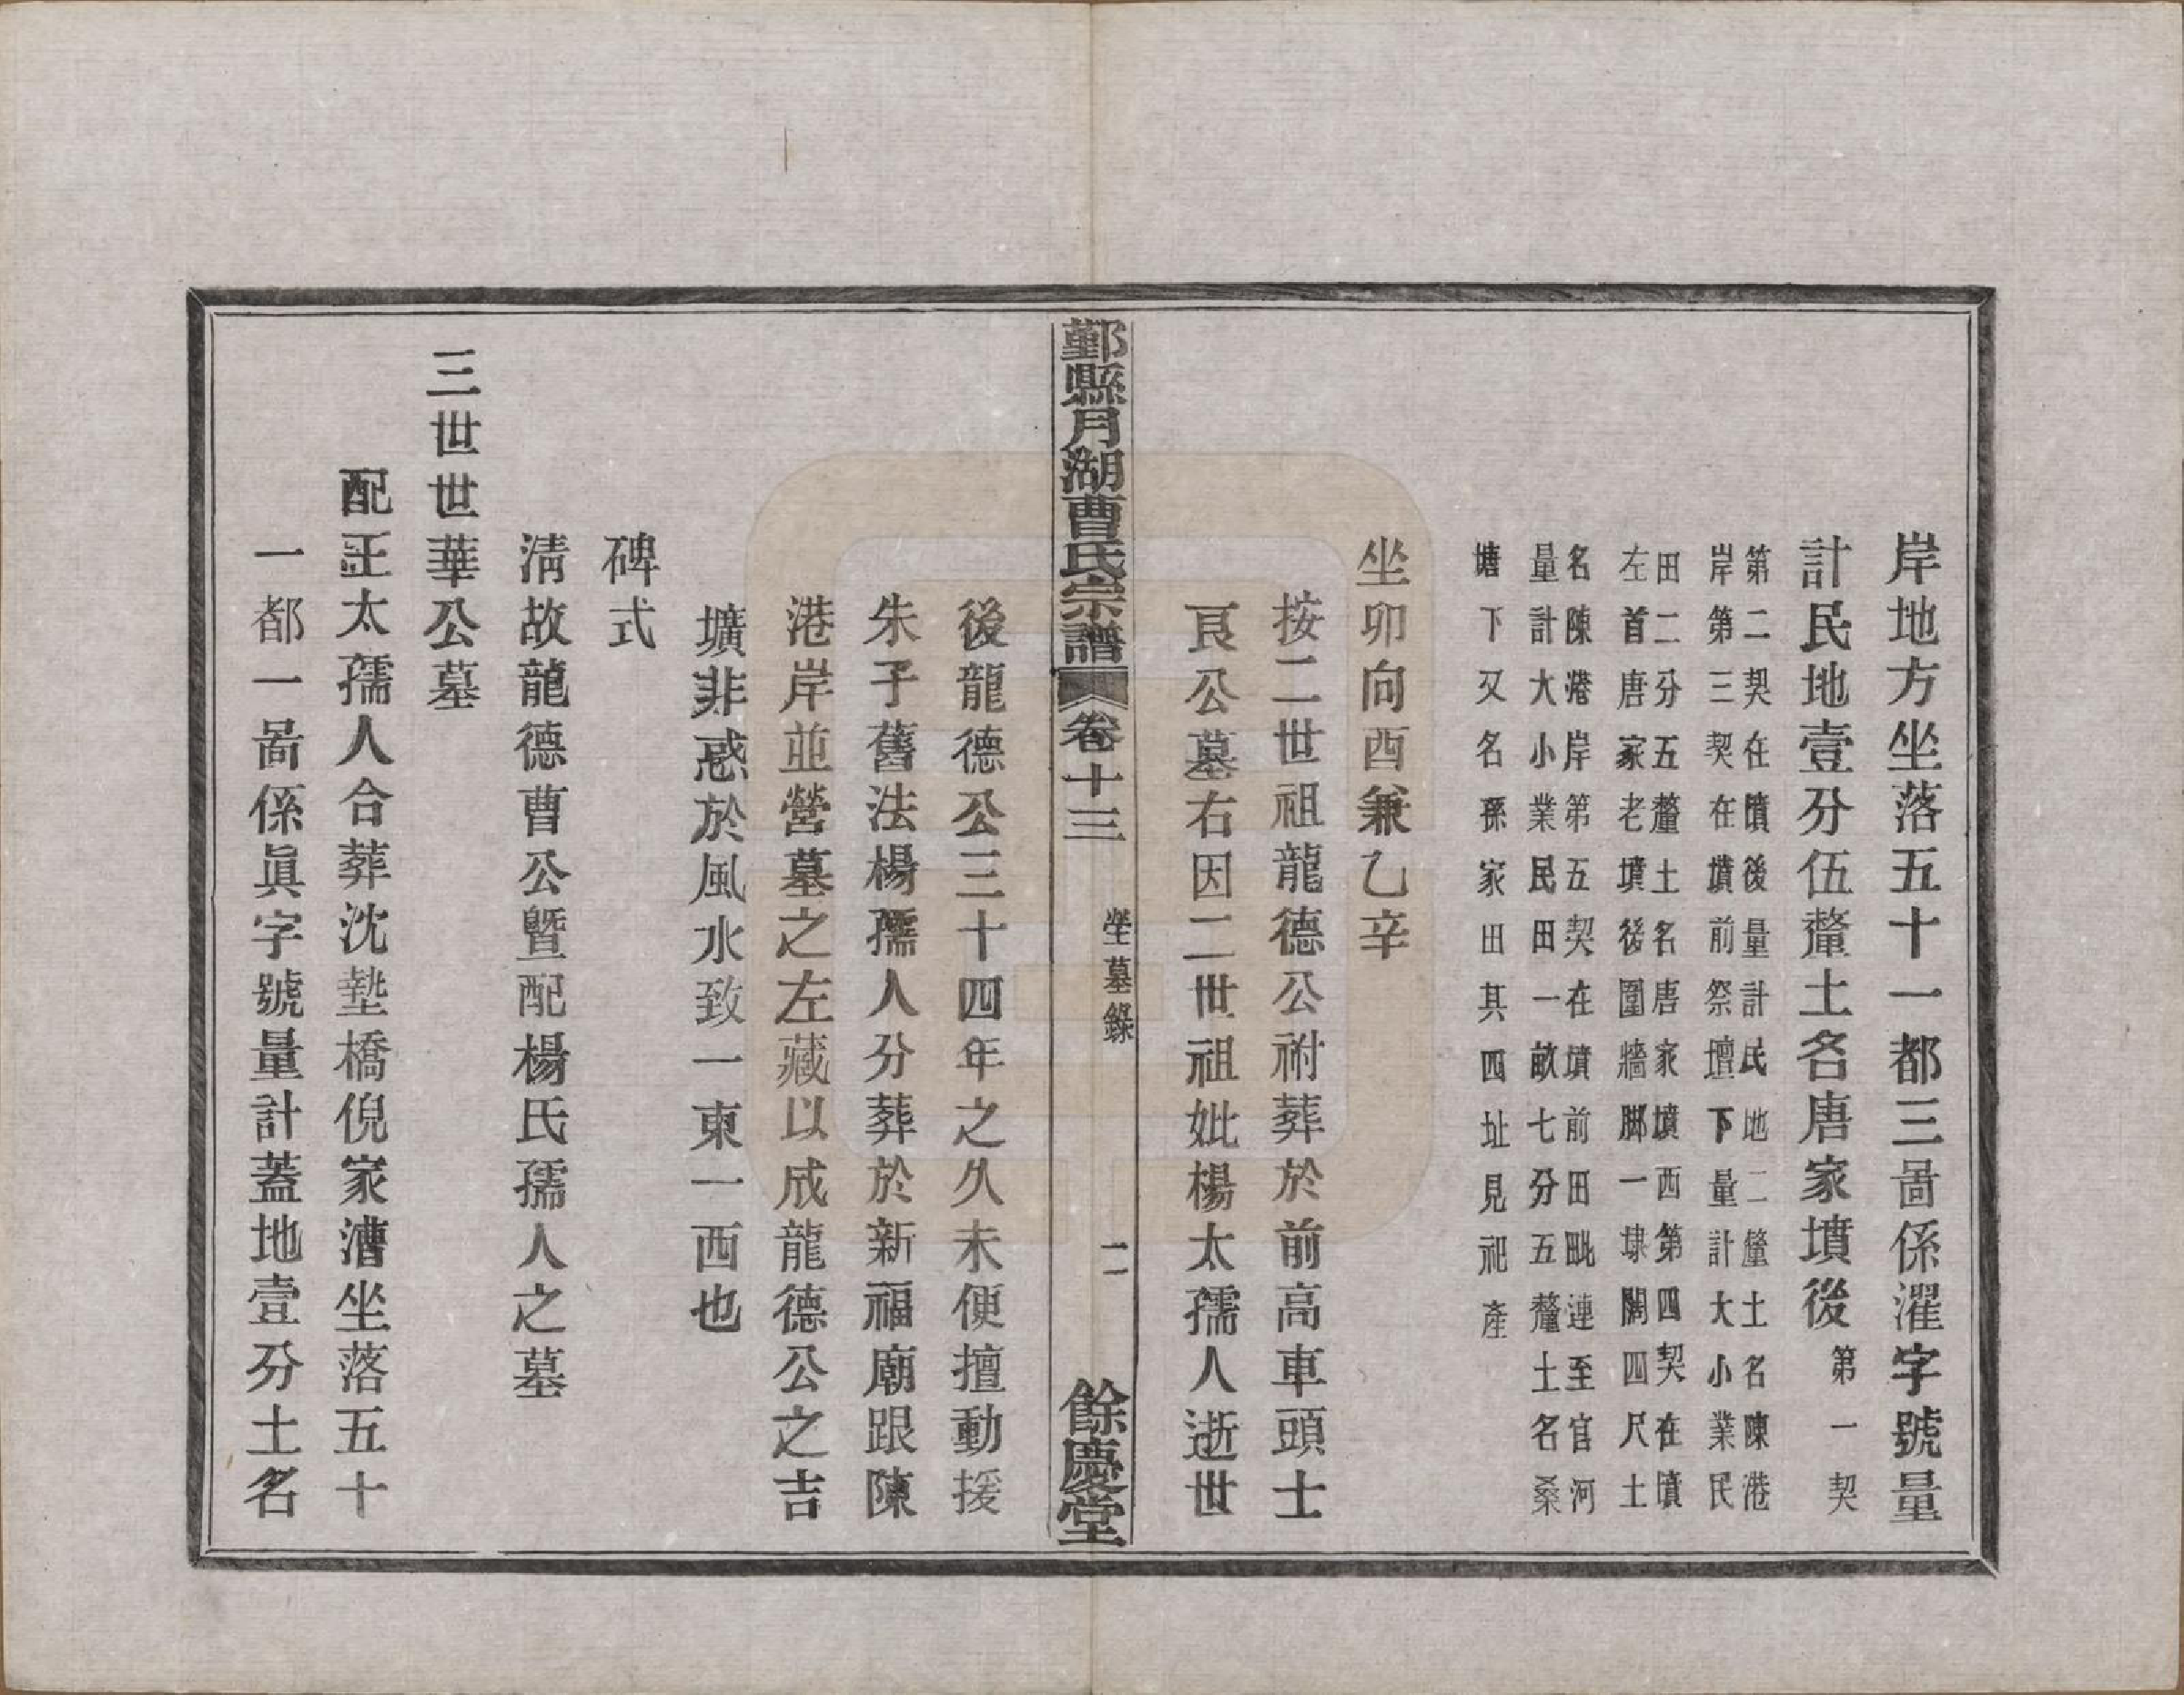 岸地方坐落五十一都三啚係濯字號量
計民地壹分伍釐土名唐家墳後第一契
第二契在墳後量計民地二釐土名陳港
岸第三契在墳前祭壇下量計大小業民
田二分五釐土名唐家墳西第四契在墳
左首唐家老墳後圍牆脚一埭闊四尺土
名陳港岸第五契在墳前田毗連至官河
量計大小業民田一畝七分五釐土名桑
塘下又名孫家田其四址見祀產
坐卯向酉兼乙辛
按二世祖龍德公祔葬於前高車頭士
良公墓右因二世祖妣楊太孺人逝世
鄞縣月湖曹氏宗譜 卷十三 塋墓錄 二 餘慶堂
後龍德公三十四年之久未便擅動援
朱子舊法楊孺人分葬於新福廟跟陳
港岸並營墓之左藏以成龍德公之吉
壙非惑於風水致一東一西也
碑式
淸故龍德曹公暨配楊氏孺人之墓
三世世華公墓
配王太孺人合葬沈墊橋倪家漕坐落五十
一都一啚係眞字號量計蓋地壹分土名